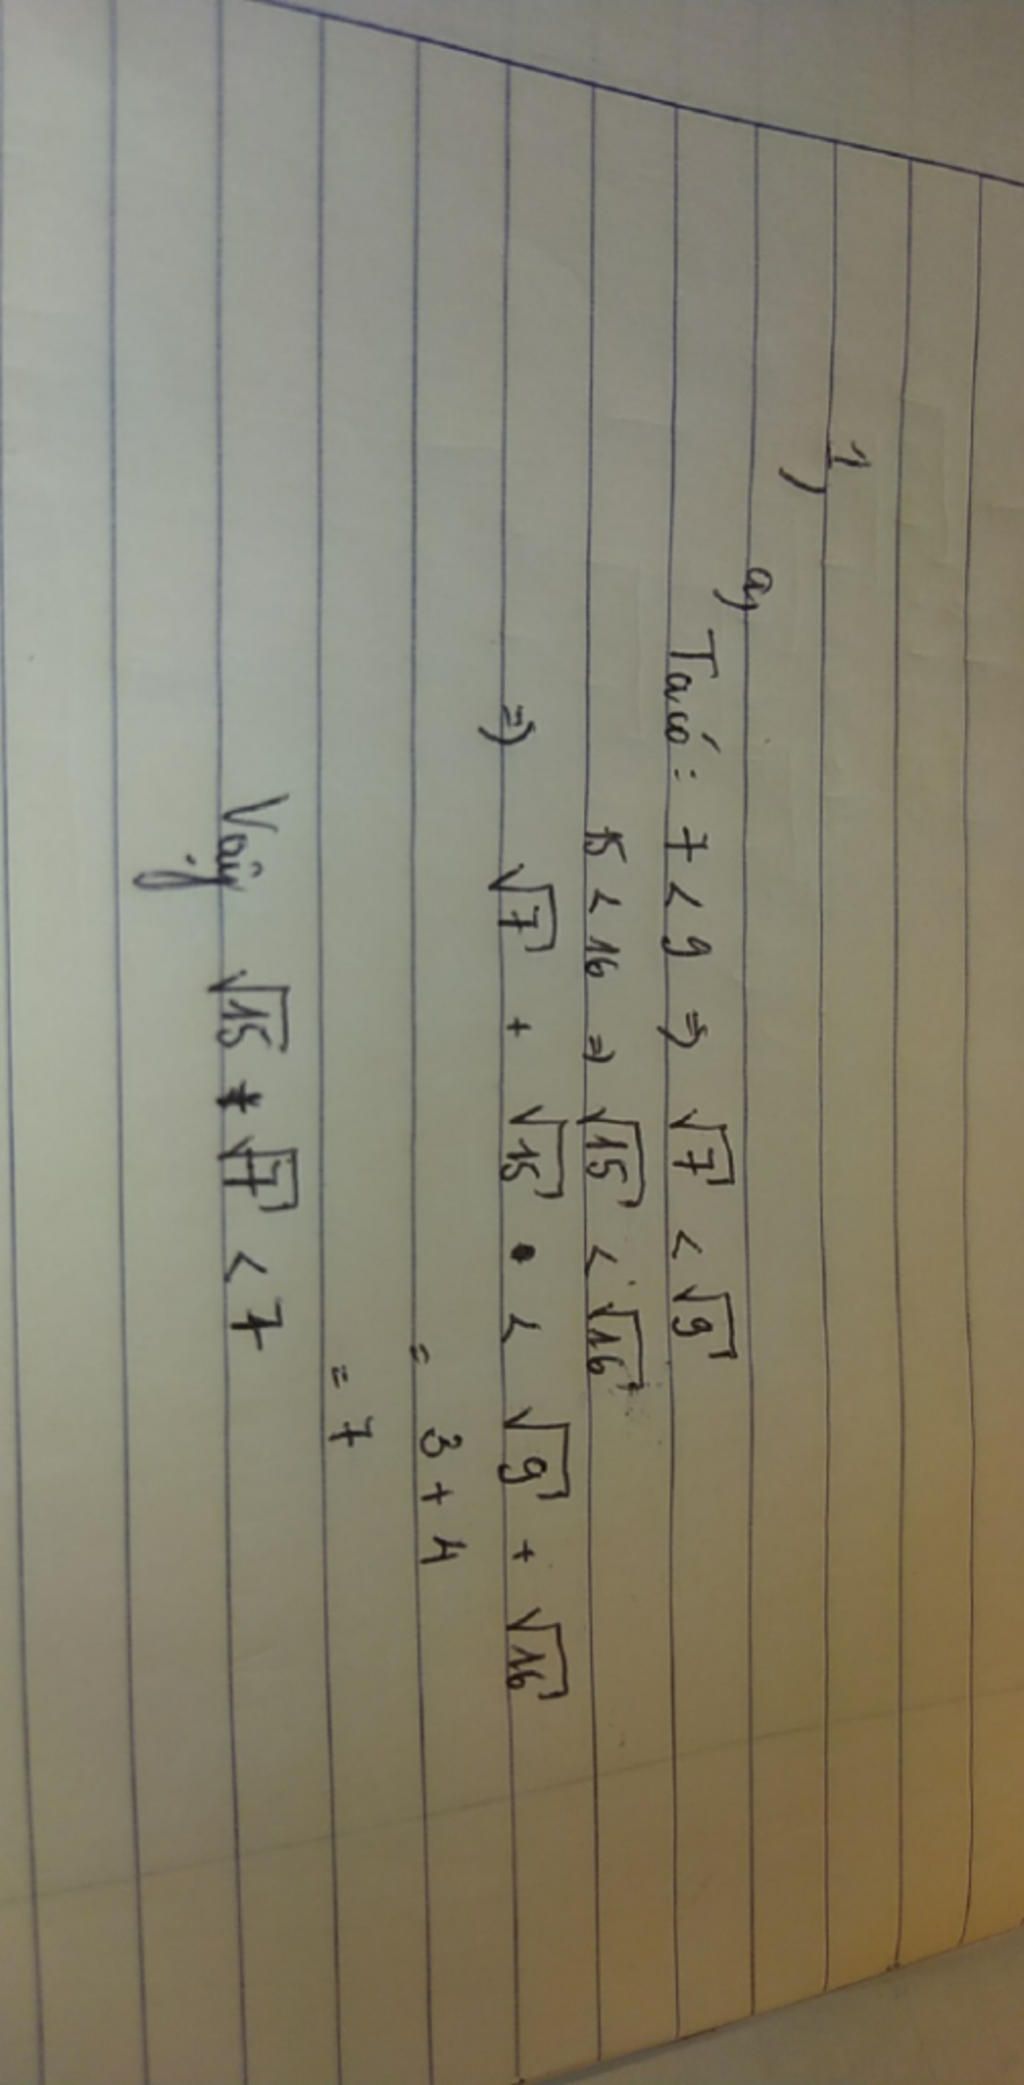 1)
a) Ta có: 7 < 9 => √7 < √9
15 < 16 => √15 < √16
=> √7 + √15 < √9 + √16
= 3 + 4
= 7
Vậy √15 + √7 < 7